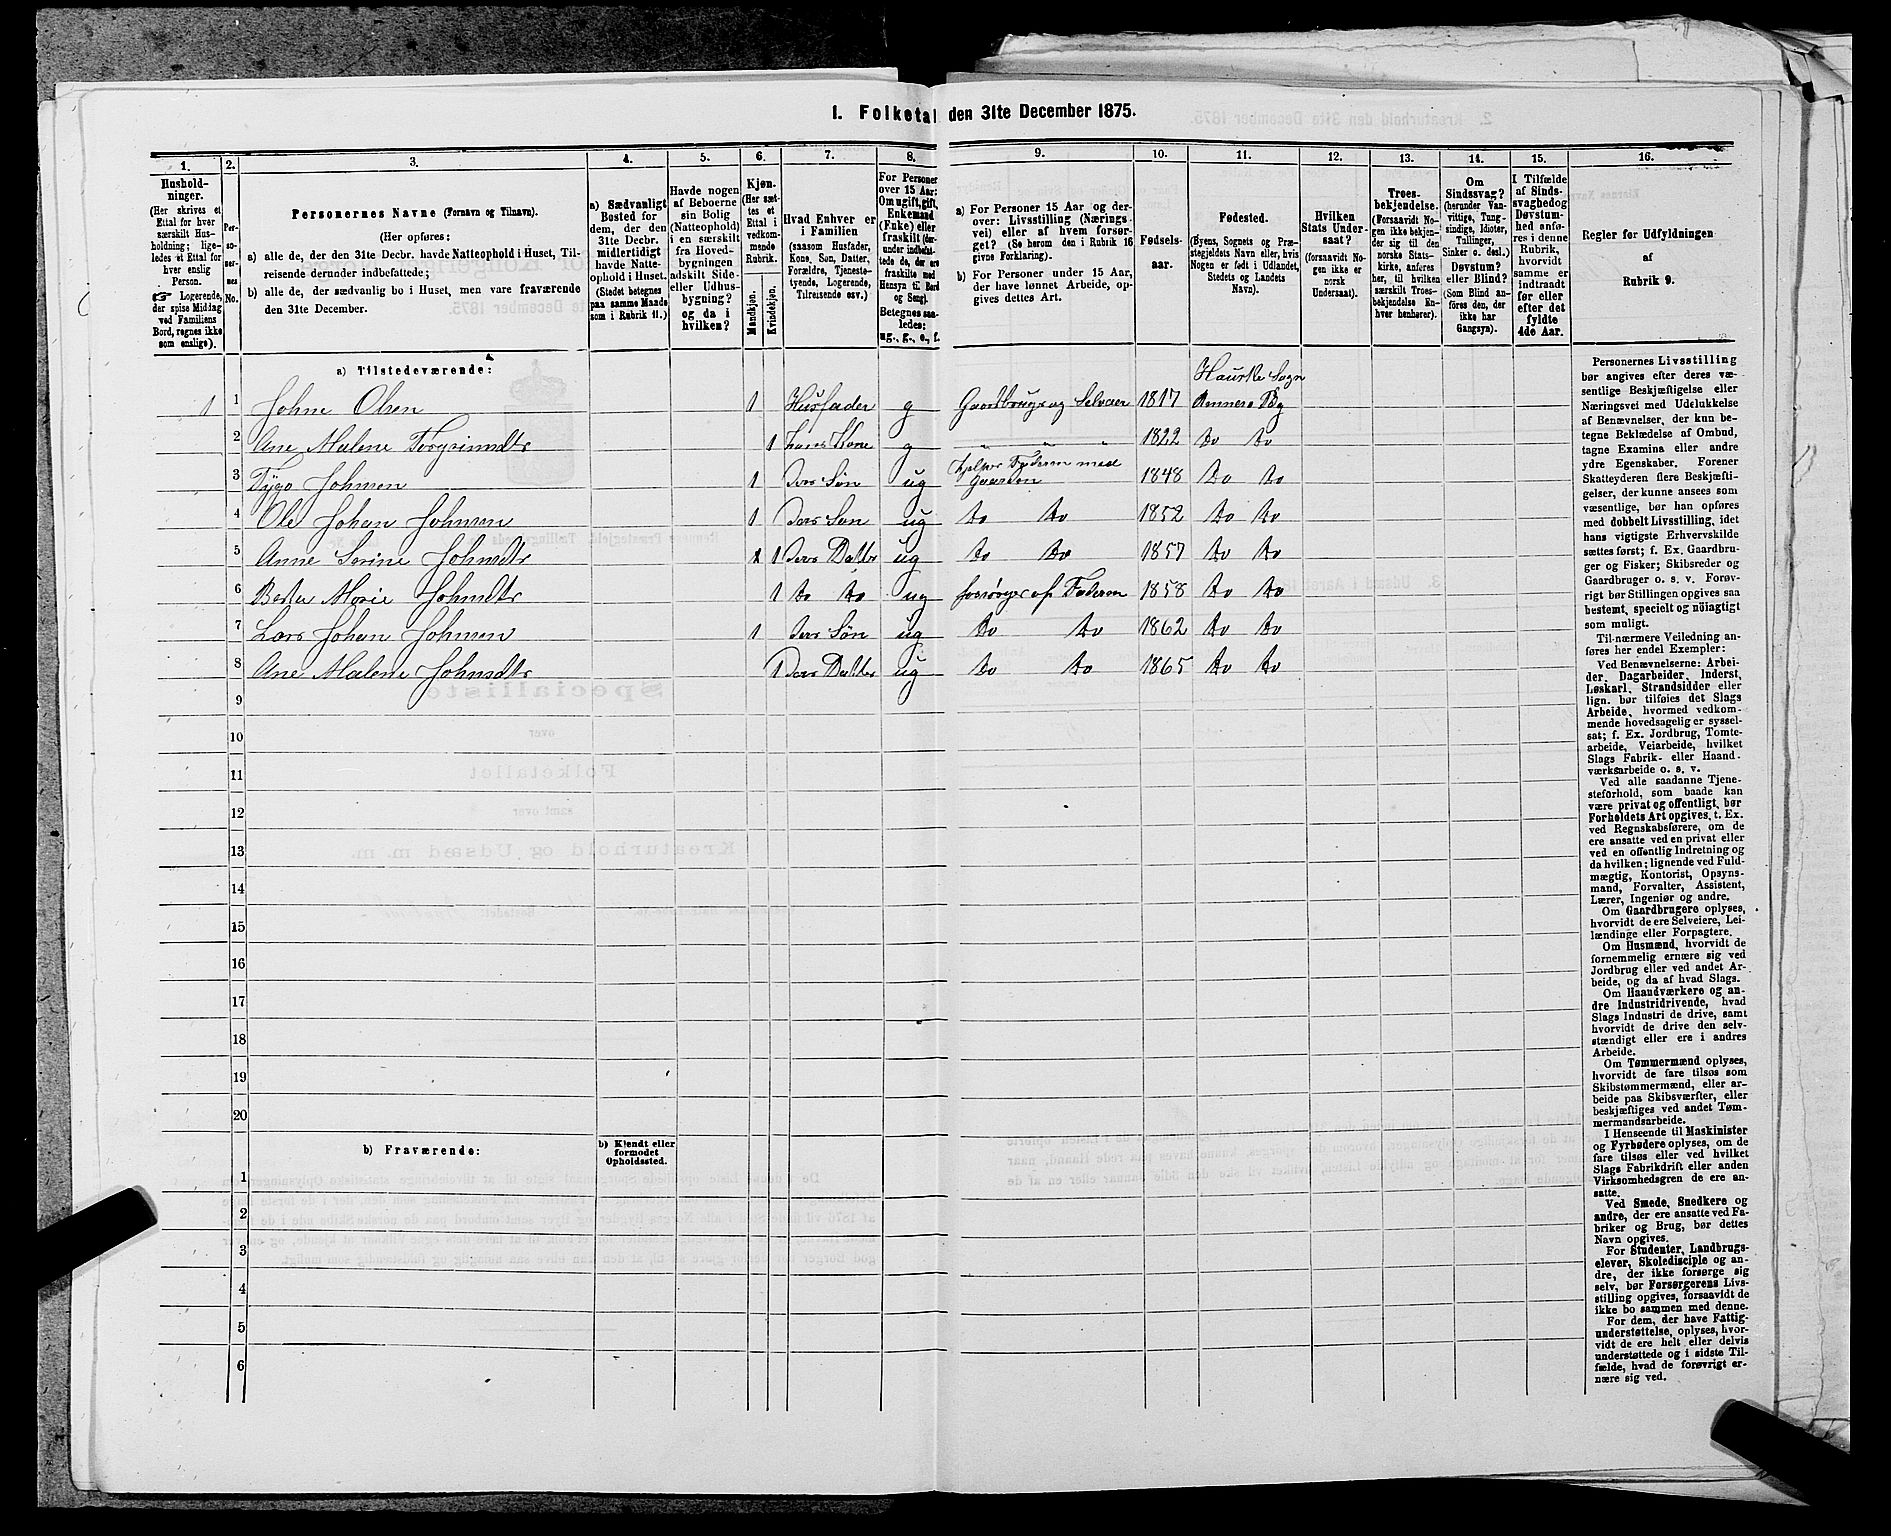 1. Folketal den 31te December 1875.
1. 2. 3. 4. 5. 6. 7. 8. 9. 10. 11. 12. 13. 14. 15. 16.
Hushold-
ninger.
(Her skrives et
Ettal for hver
særskilt Hus-
holdning; lige-
ledes et Ettal for
hver enslig
Person.
☞ Logerende,
der spise Middag
ved Familiens
Bord, regnes ikke
som enslige).
Per-
so-
ner-
nes
No.
Personernes Navne (Fornavn og Tilnavn).
(Her opføres:
a) alle de, der den 31te Decbr. havde Natteophold i Huset, Til-
reisende derunder indbefattede;
b) alle de, der sædvanlig bo i Huset, men vare fraværende
den 31te December.
a) Sædvanligt
Bosted for
dem, der den
31te Decbr.
midlertidigt
havde Natte-
ophold i Huset.
(Stedet betegnes
paa samme Maade
som i Rubrik 11.)
Havde nogen
af Beboerne
sin Bolig
(Natteophold)
i en særskilt
fra Hoved-
bygningen
adskilt Side-
eller Udhus-
bygning?
og da i
hvilken?
Kjøn.
(Her sæt-
tes et
Ettal i
vedkom-
mende
Rubrik.
Mandkjøn.
Kvindekjøn.
Hvad Enhver er
i Familien
(saasom Husfader,
Kone, Søn, Datter,
Forældre, Tjeneste-
tyende, Logerende,
Tilreisende osv.)
For Personer
over 15 Aar:
Om ugift, gift,
Enkemand
(Enke) eller
fraskilt (der-
under indbefat-
tede de, der ere
fraskilte med
Hensyn til Bord
og Seng).
Betegnes saa-
ledes:
ug., g., e., f.
a) For Personer 15 Aar og der-
over: Livsstilling (Nærings-
vei) eller af hvem forsør-
get? (Se herom den i Rubrik 16
givne Forklaring).
b) For Personer under 15 Aar,
der have lønnet Arbeide, op-
gives dettes Art.
Fødsels-
aar.
Fødested.
(Byens, Sognets og Præ-
stegjeldets Navn eller, hvis
Nogen er født i Udlandet,
Stedets og Landets
Navn).
Hvilken
Stats Under-
saat?
(forsaavidt No-
gen ikke er
norsk
Undersaat).
Troes-
bekjendelse.
(Forsaavidt No-
gen ikke bekjen-
der sig til den
norske Stats-
kirke, anføres
her, til hvilken
særskilt Troes-
bekjendelse En-
hver henhører).
Om
Sindssvag?
(herunder Van-
vittige, Tung-
sindige, Idioter,
Tullinger,
Sinker o. desl.)
Døvstum?
eller Blind?
(Som Blind an-
føres den, der
ikke har
Gangsyn).
I Tilfælde
af Sinds-
svaghed og
Døvstum-
hed anfø-
res i denne
Rubrik,
hvorvidt
samme er
indtraadt
før eller
efter det
fyldte
4de Aar.
Regler før Udfyldningen
af
Rubrik 9.
a) Tilstedeværende:
Haurke Sogn
1 1 Johne Olsen 1 Husfader g Gaardbruger og Selveier 1817 Anners Pg
2 Ane Malene Torgrimsdtr 1 hans Kone g " " " 1822 Do Do
hjelper Faderen med
3 Tygo Johnsen 1 Der Søn ug Gaarden 1848 Do Do
4 Ole Johan Johnsen 1 Ders Søn ug Do Do 1852 Do Do
5 Anne Serine Johnsdtr 1 Ders Datter ug Do Do 1857 Do Do
6 Berte Marie Johnsdtr 1 Do Do ug forsørges af Faderen 1858 Do Do
7 Lars Johan Johnsen 1 Ders Søn ug Do Do 1862 Do Do
8 Ane Malene Johnsdtr 1 Ders Datter ug Do Do 1865 Do Do
9
10
11
12
13
14
15
16
17
18
19
20
b) Fraværende:
b) Kjendt eller
formodet
Opholdssted.
1
2
3
4
5
6
Personernes Livsstilling
bør angives efter deres væ-
sentlige Beskjæftigelse eller
Næringsvei med Udelukkelse
af Benævnelser, der kun be-
tegne Beklædelse af Ombud,
tagne Examina eller andre
ydre Egenskaber. Forener
Skatteyderen flere Beskjæfti-
gelser, der kunne ansees som
væsentlige, bør han opføres
med dobbelt Livsstilling, idet
hans vigtigste Erhvervskilde
sættes først; f. Ex. Gaardbru-
ger og Fisker; Skibsreder og
Gaardbruger o. s. v. Forøv-
rigt bør Stillingen opgives saa
bestemt, specielt og nöiagtigt
som muligt.
Til nærmere Veiledning an-
føres her endel Exempler:
Ved Benævnelserne: Arbei-
der, Dagarbeider, Inderst,
Løskarl, Strandsidder eller
lign. bør tilføies det Slags
Arbeide, hvormed vedkom-
mende hovedsagelig er syssel-
sat; f. Ex. Jordbrug, Tomte-
arbeide, Veiarbeide, hvilket
Slags Fabrik- eller Haand-
værksarbeide o. s. v.
Ved alle saadanne Tjene-
steforhold, som baade kan
være privat og offentligt, bør
Forholdets Art opgives, t. Ex.
ved Regnskabsførere, om de
ere ansatte ved en privat eller
ved en offentlig Indretning og
da hvilken; lignende ved Fuld-
mægtig, Kontorist, Opsyns-
mand, Forvalter, Assistent,
Lærer, Ingeniør og andre.
Om Gaardbrugere oplyses,
hvorvidt de ere Selveiere, Lei-
lændinge eller Forpagtere.
Om Husmænd, hvorvidt de
fornemmelig ernære sig ved
Jordbrug eller ved andet Ar-
beide, og da af hvad Slags.
Om Haandværkere og an-
dre Industridrivende, hvad
Slags Industri de drive, samt
hvorvidt de drive den selv-
stændigt eller ere i andres
Arbeide.
Om Tømmermænd oplyses,
hvorvidt de fare tilsøs som
Skibstømmermænd, eller ar-
beide paa Skibsværfter, eller
beskjæftiges ved andet Tøm-
mermandsarbeide.
I Henseende til Maskinister
og Fyrbødere oplyses, om de
fare tilsøs eller ved hvilket
Slags Fabrikdrift eller anden
Virksomhedsgren de ere an-
satte.
Ved Smede, Snedkere og
andre, der ere ansatte ved Fa-
briker og Brug, bør dettes
Navn opgives.
For Studenter, Landbrugs-
elever, Skoledisciple og an-
dre, der ikke forsørge sig
selv, bør Forsørgerens Livs-
stilling opgives, forsaavidt de
ikke bo sammen med denne.
For dem, der have Fattig-
understøttelse, oplyses, hvor-
vidt de ere helt eller delvis
understøttede og i sidste Til-
fælde, hvad de forøvrigt er-
nære sig ved.